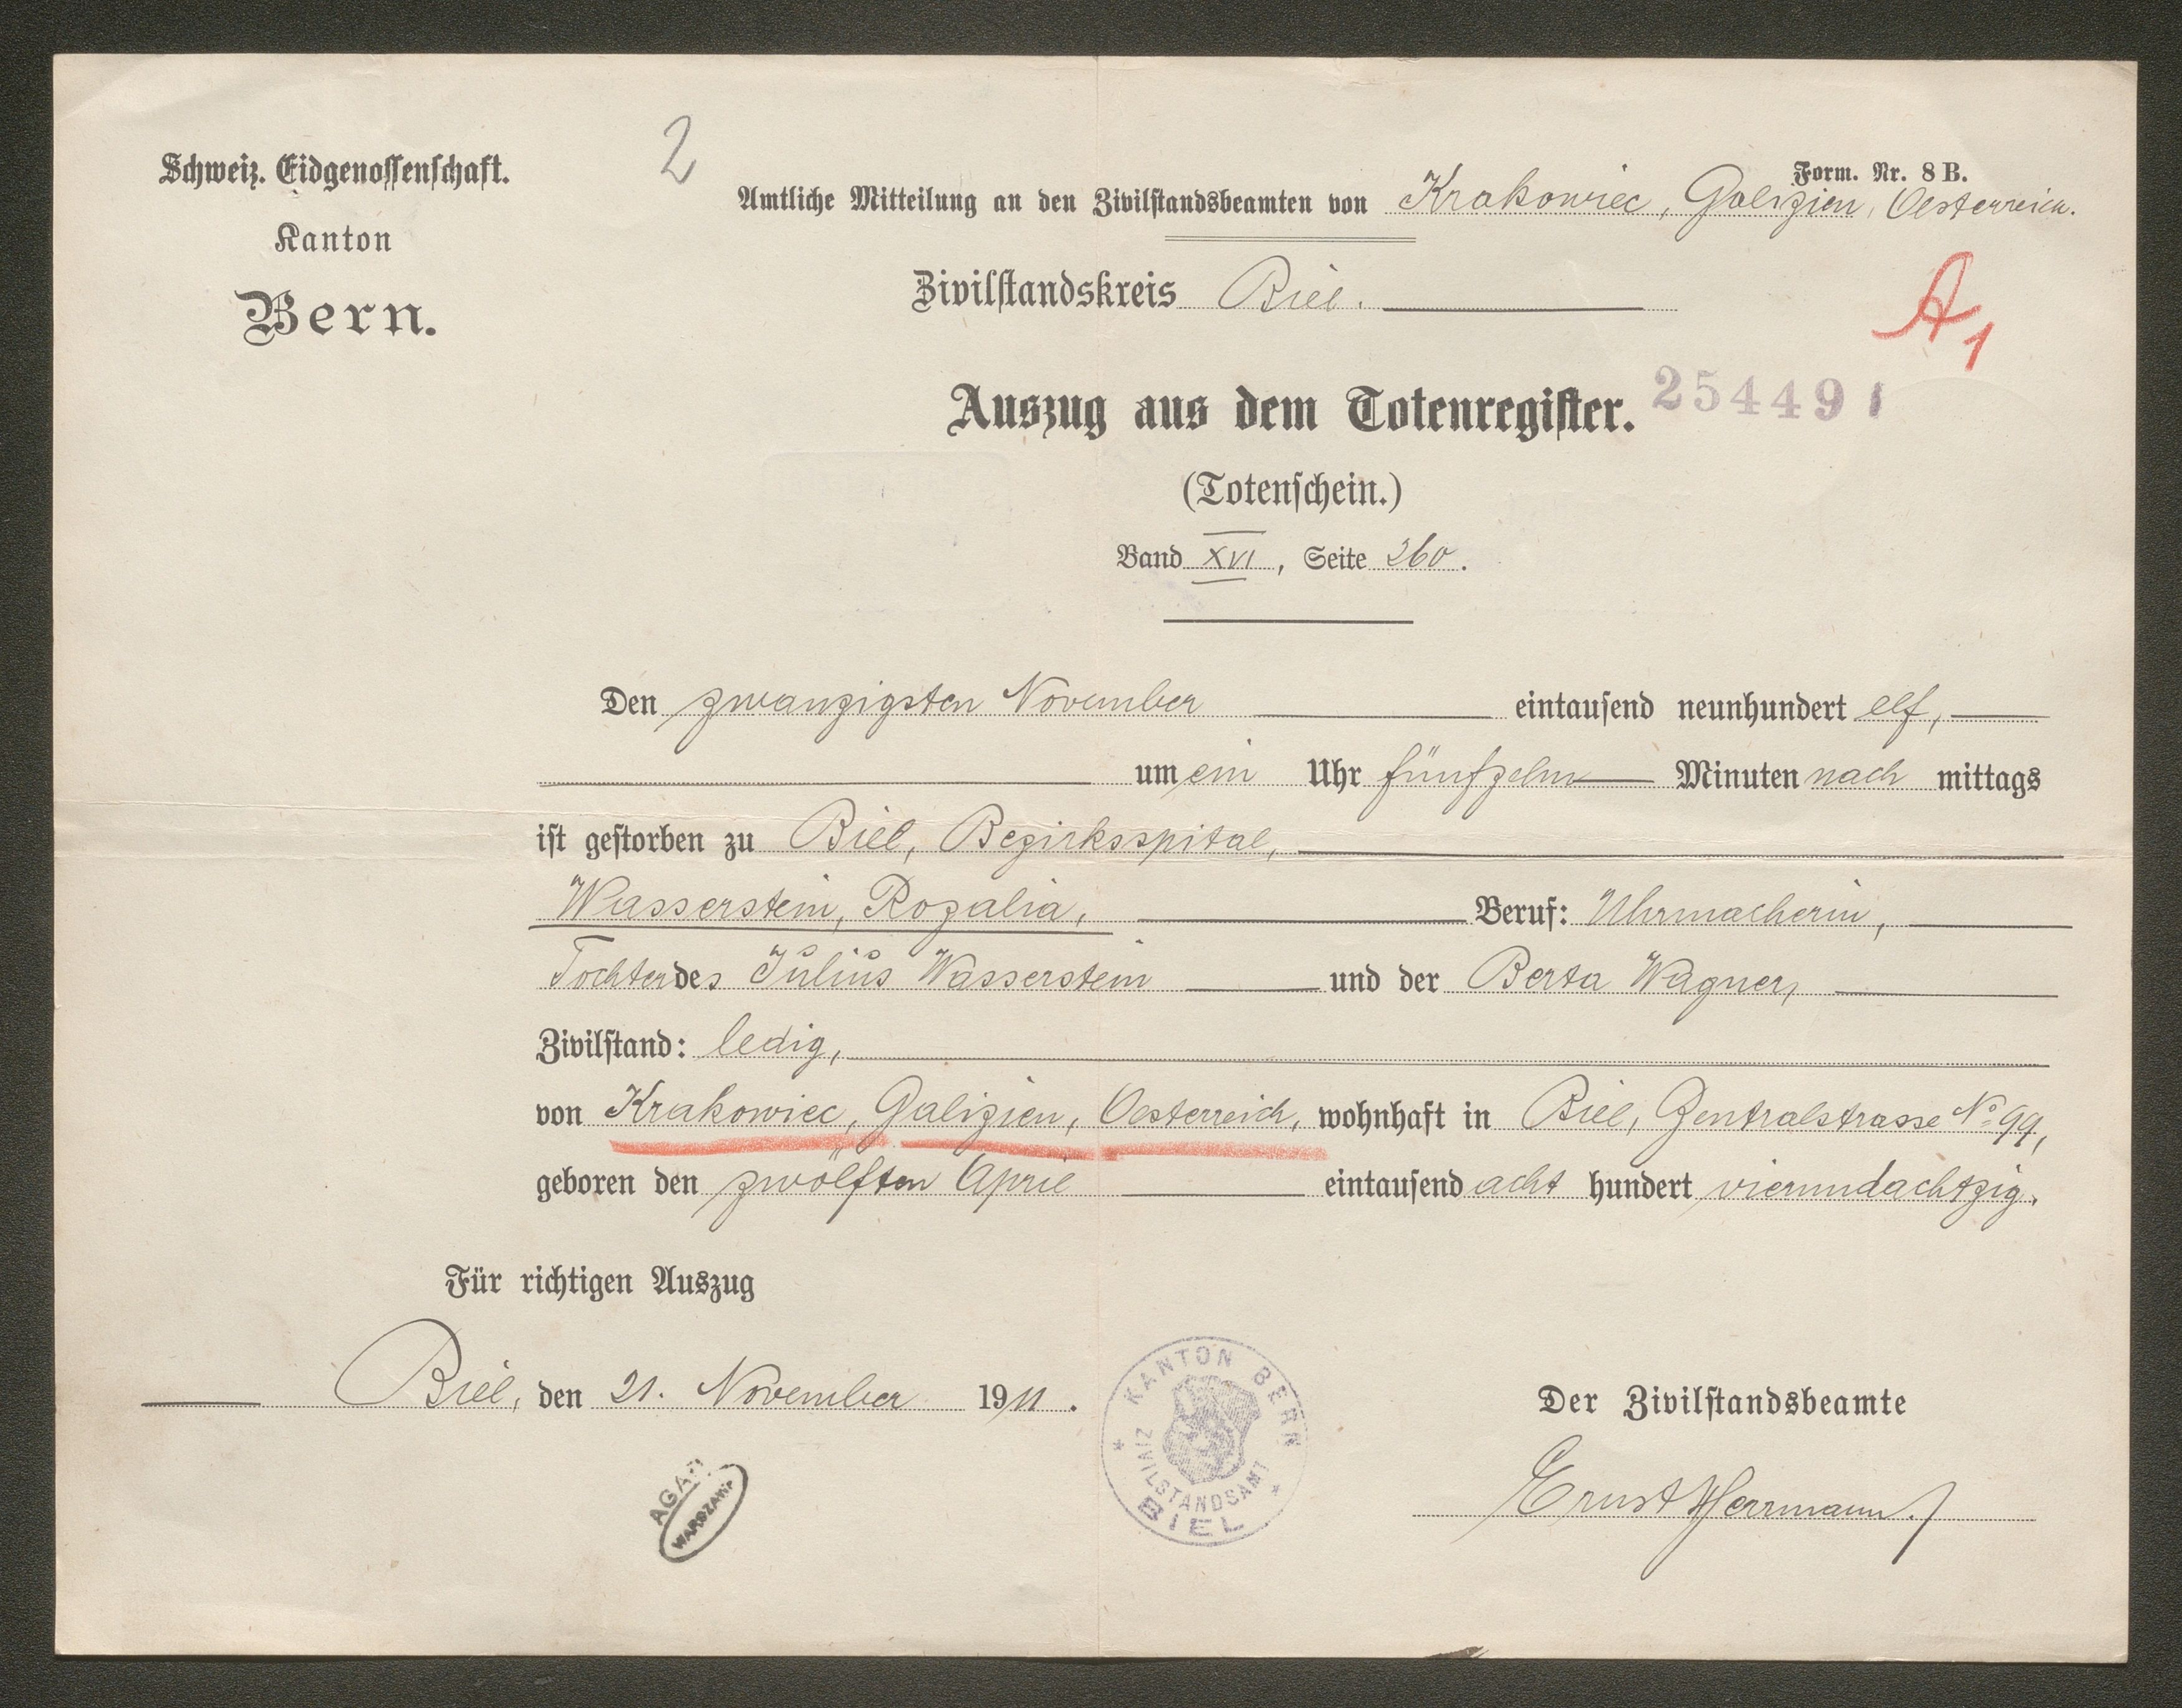 Schweiz. Eidgenossenschaft.
Kanton
Bern.
2
Form. Nr. 8 B.
Amtliche Mitteilung an den Zivilstandsbeamten von Krakowiec, Galizien, Oesterreich.
Zivilstandskreis Biel.
A1
Auszug aus dem Totenregister. 254491
(Totenschein.)
Band XVI, Seite 260.
Den zwanzigsten November eintausend neunhundert elf,
um ein Uhr fünfzehn Minuten nach mittags
ist gestorben zu Biel, Bezirksspital,
Wasserstein, Rozalia, Beruf: Uhrmacherin,
Tochter des Julius Wasserstein und der Berta Wagner,
Zivilstand: ledig,
von Krakowiec, Galizien, Oesterreich, wohnhaft in Biel, Zentralstrasse No 99,
geboren den zwölften April eintausend acht hundert vierundachtzig.
Für richtigen Auszug
Biel, den 21. November 1911.
KANTON BERN
ZIVILSTANDSAMT
BIEL
Der Zivilstandsbeamte
Ernst Herrmann.
AGAD
WARSZAWA